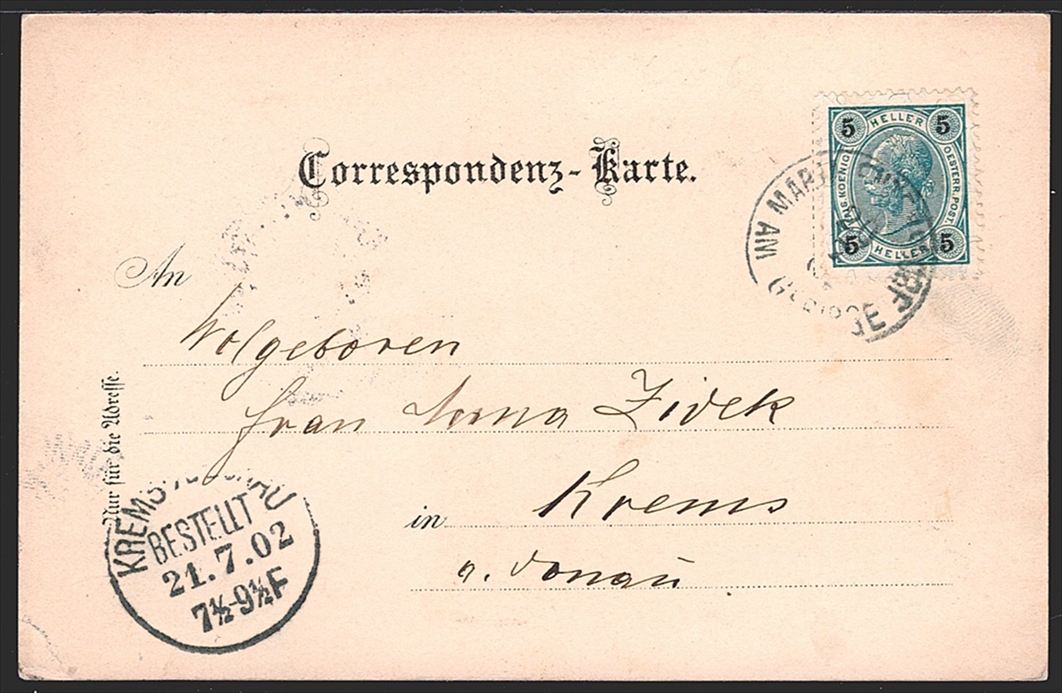 Correspondenz-Karte.
5 HELLER 5
KAIS. KOENIGL. OESTERR. POST.
5 HELLER 5
MARIA AM GEBIRGE
An
Wolgeboren
Frau Anna Zidek
in Krems
a. Donau
Nur für die Adresse.
KREMS A/DONAU
BESTELLT
21.7.02
7½-9½F